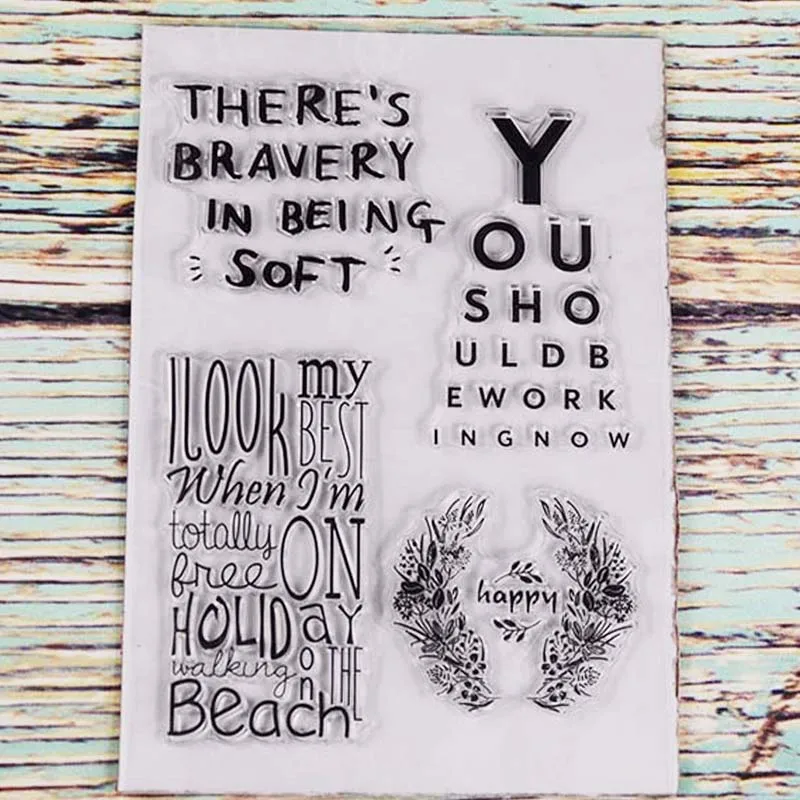 THERE'S
BRAVERY
IN BEING
SOFT
Y
OU
SHO
ULDB
EWORK
INGNOW
I LOOK my
BEST
When I'm
totally
free ON
HOLIDay
walking on THE
Beach
happy